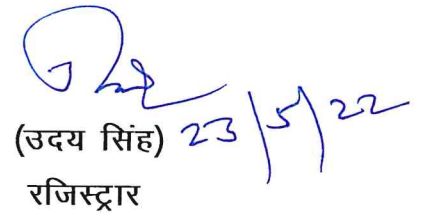 (उदय सिंह) 23/5/22
रजिस्ट्रार